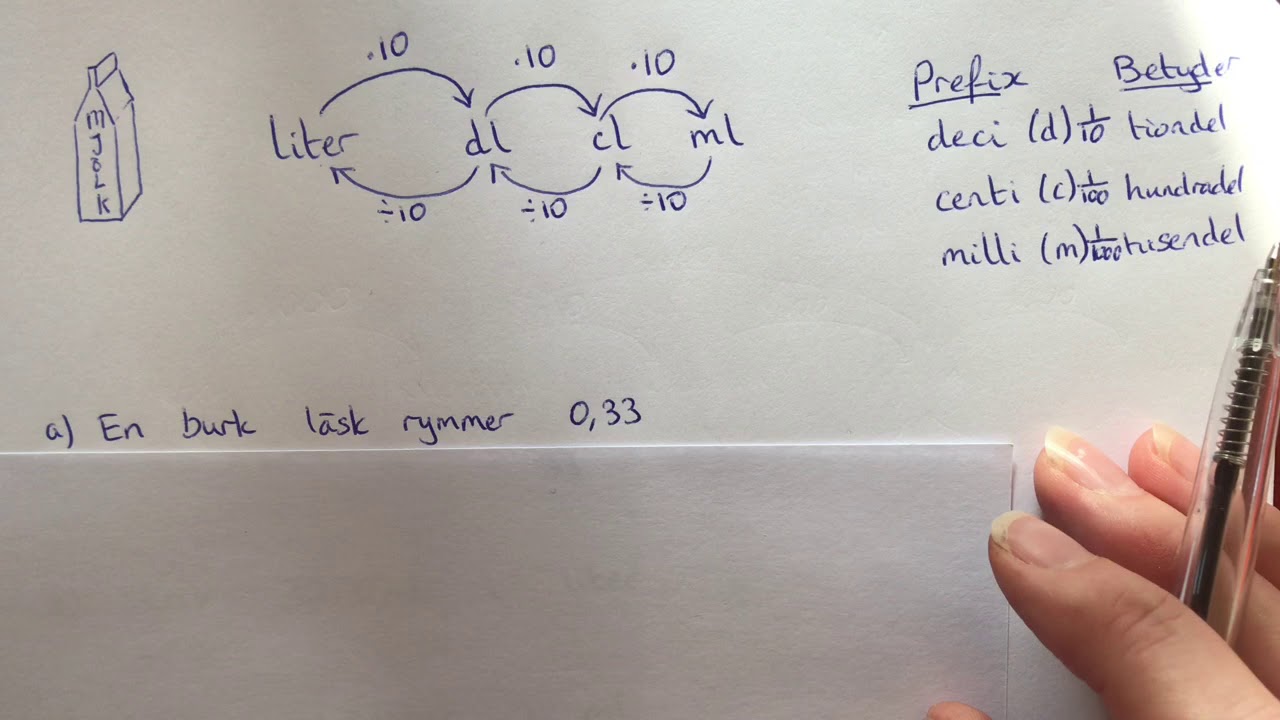 MJÖLK
·10 ·10 ·10
liter dl cl ml
÷10 ÷10 ÷10
Prefix Betyder
deci (d) 1/10 tiondel
centi (c) 1/100 hundradel
milli (m) 1/1000 tusendel
a) En burk läsk rymmer 0,33